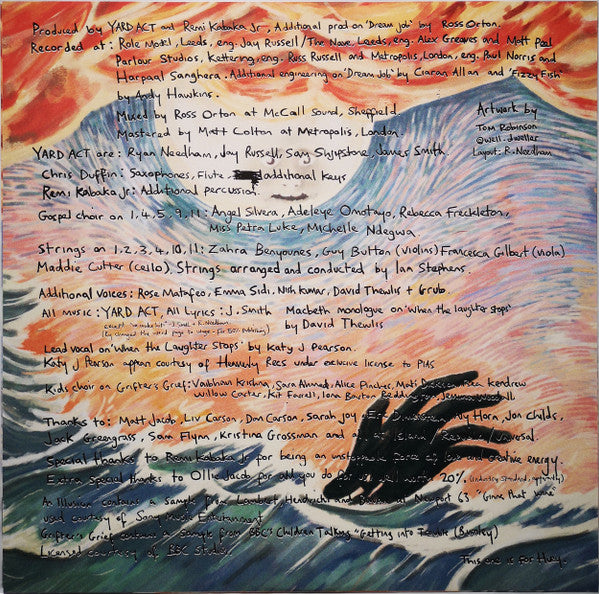 Produced by YARD ACT and Remi Kabaka Jr, Additional prod on 'Dream Job' by Ross Orton.
Recorded at: Role Model, Leeds, eng. Jay Russell / The Nave, Leeds, eng. Alex Greaves and Matt Peel
Parlour Studios, Kettering, eng. Russ Russell and Metropolis, London, eng. Paul Norris and
Harpaal Sanghera. Additional engineering on 'Dream Job' by Ciaran Allan and 'Fizzy Fish'
by Andy Hawkins.
Mixed by Ross Orton at McCall Sound, Sheffield.
Mastered by Matt Colton at Metropolis, London.
Artwork by
Tom Robinson
@well.dweller
Layout: R. Needham
YARD ACT are: Ryan Needham, Jay Russell, Sam Shjipstone, James Smith.
Chris Duffin: Saxophones, Flute additional Keys
Remi Kabaka Jr: Additional percussion.
Gospel choir on 1,4,5,9,11: Angel Silvera, Adeleye Omotayo, Rebecca Freckleton,
Miss Petra Luke, Michelle Ndegwa.
Strings on 1,2,3,4,10,11: Zahra Benyounes, Guy Button (violins) Francesca Gilbert (viola)
Maddie Cutter (cello), Strings arranged and conducted by Ian Stephens.
Additional Voices: Rose Matafeo, Emma Sidi, Nish Kumar, David Thewlis + Grub.
All music: YARD ACT, All Lyrics: J. Smith
except J. Smith + R. Needham
(Ry changed the word page to stage - for 50% publishing)
Macbeth monologue on 'when the laughter stops'
by David Thewlis
Lead vocal on 'When the Laughter Stops' by Katy J Pearson.
Katy J Pearson appears courtesy of Heavenly Recs under exclusive license to PIAS
Kids choir on Grifter's Grief: Vaibhav Krishna, Sara Ahmed, Alice Pincher, Moti Kendrew
Willow Carter, Kit Farrell, Iona Barton Reddington, Jemima Woodall.
Thanks to: Matt Jacob, Liv Carson, Dan Carson, Sarah Joy Horn, Jon Childs,
Jack Greengrass, Sam Flynn, Kristina Grossman and all at Island / Universal.
Special thanks to Remi Kabaka Jr for being an unstoppable force of love and creative energy.
Extra Special thanks to Ollie Jacob for all you do for us, well worth 20%. (industry standard, apparently)
An Illusion contains a sample from Lambert, Hendricks and Bavan at Newport 63 "Gimme That Wine"
used courtesy of Sony Music Entertainment
Grifter's Grief contains a sample from BBC's Children Talking "Getting into Trouble (Burnley)
Licensed courtesy of BBC Studios.
This one is for Huey.